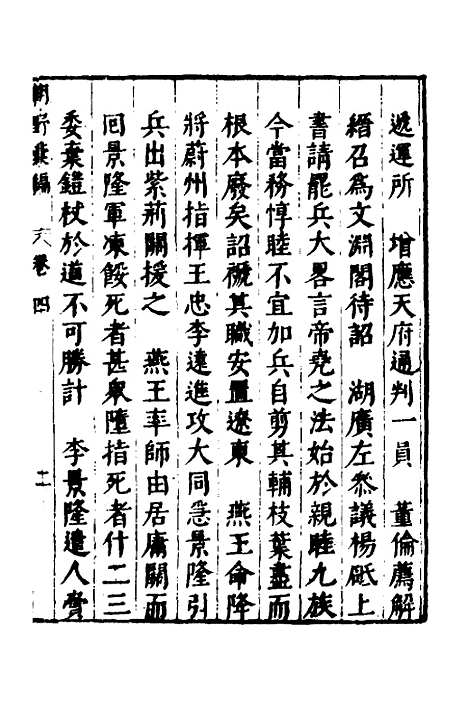 遞運所　增應天府通判一員　董倫薦解
縉召爲文淵閣待詔　湖廣左叅議楊砥上
書請罷兵大畧言帝堯之法始於親睦九族
今當務惇睦不宜加兵自剪其輔枝葉盡而
根本廢矣詔褫其職安置遼東　燕王命降
將蔚州指揮王忠李遠進攻大同急景隆引
兵出紫荊關援之　燕王率師由居庸關而
回景隆軍凍餒死者甚衆墮指死者什二三
委棄鎧杖於道不可勝計　李景隆遣人賫
朝野彙編　卷四　十一